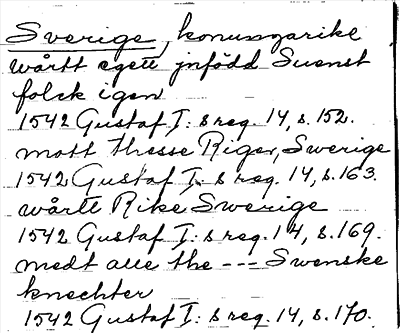 Sverige, konungarike
wårtt egett jnfödd Suenst
folck igen
1542 Gustaf I: s reg. 14, s. 152.
mott thesse Riger, Sverige
1542 Gustaf I: s reg. 14, s. 163.
wårtt Rike Swerige
1542 Gustaf I: s reg. 14, s. 169.
medt alle the --- Swenske
knechter
1542 Gustaf I: s reg. 14, s. 170.